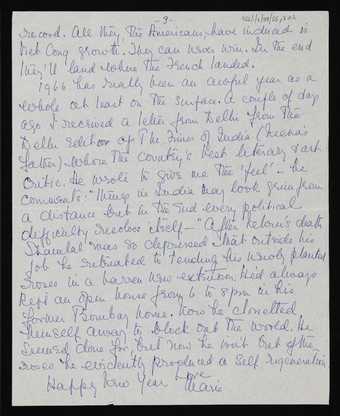 - 3 -
record. All they, the Americans, have induced is
Viet Cong growth. They can never win. In the end
they'll land where the French landed.
1966 has really been an awful year as a
whole at least on the surface. A couple of days
ago I received a letter from Delhi from the
Delhi editor of The Times of India
father) Where the Country's best literary & art
Critic. He wrote to give me the 'feel' - he
comments: "Things in India may look grim from
a distance but in the end every political
difficulty resolves itself - " After death
Shamlal was so depressed that outside his
job he retreated to tending his newly planted
roses in a barren new extension. He'd always
kept an open house from 6 to 8 pm in his
former Bombay home. Now he closeted
himself away to block out the world. He
seemed done for, but now he won't. Out of the
roses he evidently produced a self regeneration
Happy New Year Love
Marie